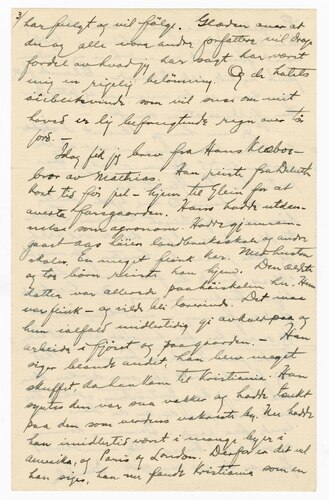 3/
har fulgt og vil følge. Glæden over at
du og alle vore andre forfattere vil drage
fordel av hvad jeg har sagt har været
mig en rigelig belønning Og de hatets
hvirvelvinde som vil suse om mit
hoved er lig befrugtende regn over tør
jord. —
Idag fik jeg brev fra Hans
bror av Mathias. Han reiste fra Duluth
kort tid før jul — hjem til Glein for at
overta farsgaarden. Hans hadde utdan-
nelse som agronom. Hadde gjennem-
gaat aas høiere landbruksskole og andre
skoler. En meget flink kar. Med hustru
og tre børn reiste han hjem. Den ældste
datter var allerede paa høiskolen her. Hun
var flink — og vilde bli lærerinde. Det maa
hun ialfald midlertidig gi avkald paa og
arbeide i fjøset og paa gaarden. — Han
siger blandt andet, han blev meget
skuffet da han kom til Kristiania. Han
syntes den var saa vakker og hadde tænkt
paa den som verdens vakreste by. Nu hadde
han imidlertid været i mange byer i
Amerika, og Paris og London. Derfor er det vel
han siger, han nu fandt Kristiania som en